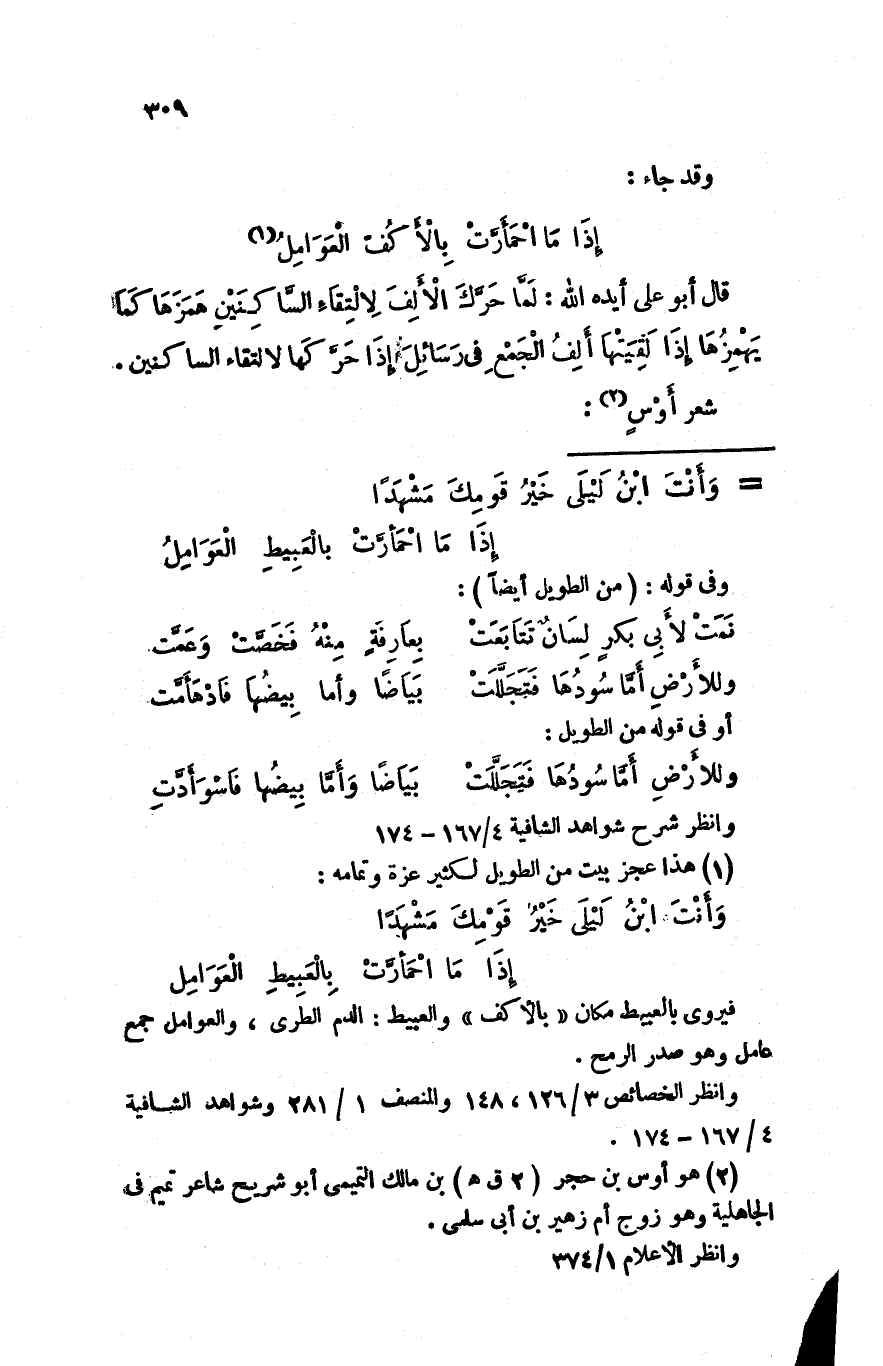 ٣٠٩
وقد جاء :
إِذَا مَا احْمَأَرَّتْ بِالْأَكُفّ الْعَوَامِلُ(١)
قال أبو على أيده الله : لَمَّا حَرَّكَ الْأَلِفَ لِالْتِقَاء السَّاكِنَيْنِ هَمَزَهَا كَمَا
يَهْمِزُهَا إِذَا لَقِيَتْهَا أَلِفُ الْجَمْعِ فى رَسَائِلَ إِذَا حَرَّكَها لالتقاء الساكنين .
شعر أَوْسٍ(٢) :
= وَأَنْتَ ابْنُ لَيْلَى خَيْرُ قَومِكَ مَشْهَدًا
إِذَا مَا احْمَأَرَّتْ بالْعَبِيطِ الْعَوَامِلُ
وفى قوله : ( من الطويل أيضاً ) :
نَمَتْ لأَبِى بَكرٍ لِسَانٌ تَتَابَعَتْ بِعَارِفَةٍ مِنْهُ فَخَصَّتْ وَعَمَّت
وللأَرْضِ أَمَّا سُودُهَا فَتَجَلَّلَتْ بَيَاضًا وأما بِيضُهَا فَادْهَأَمَّت
أو فى قوله من الطويل :
وللأَرْضِ أَمَّا سُودُهَا فَتَجَلَّلَتْ بَيَاضًا وَأَمَّا بِيضُها فَاسْوَأَدَّتِ
وانظر شرح شواهد الشافية ٤/١٦٧ – ١٧٤
(١) هذا عجز بيت من الطويل لكثير عزة وتمامه :
وَأَنْتَ ابْنُ لَيْلَى خَيْرُ قَوْمِكَ مَشْهَدًا
إِذَا مَا احْمَأَرَّتْ بِالْعَبِيطِ الْعَوَامِل
فيروى بالعبيط مكان « بالأكف » والعبيط : الدم الطرى ، والعوامل جمع
عامل وهو صدر الرمح .
وانظر الخصائص ٣/١٢٦ ، ١٤٨ والمنصف ١ / ٢٨١ وشواهد الشافية
٤ / ١٦٧ – ١٧٤ .
(٢) هو أوس بن حجر ( ٢ ق ه ) بن مالك التميمى أبو شريح شاعر تميم فى
الجاهلية وهو زوج أم زهير بن أبى سلمى .
وانظر الأعلام ١/٣٧٤